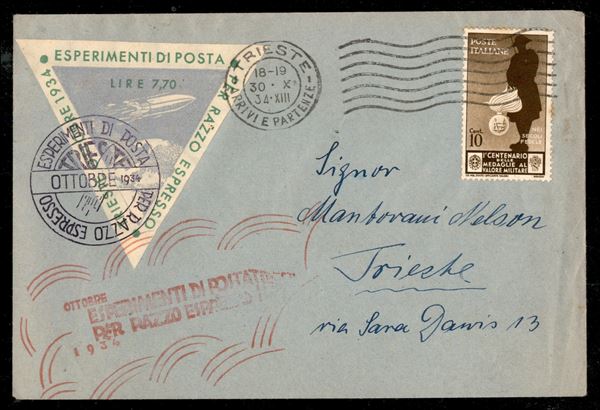 ESPERIMENTI DI POSTA
PER RAZZO ESPRESSO
TRIESTE 1934
LIRE 7,70
ESPERIMENTI DI POSTA
TRIESTE
OTTOBRE 1934
PER RAZZO ESPRESSO
TRIESTE
18-19
30 X
34·XIII
ARRIVI E PARTENZE
POSTE
ITALIANE
NEI
SECOLI
FEDELE
Cent.
10
I° CENTENARIO
DELLE
MEDAGLIE AL
VALORE MILITARE
Signor
Mantovani Nelson
Trieste
via Sara Dawis 13
OTTOBRE
ESPERIMENTI DI POSTA
PER RAZZO ESPRESSO
1934